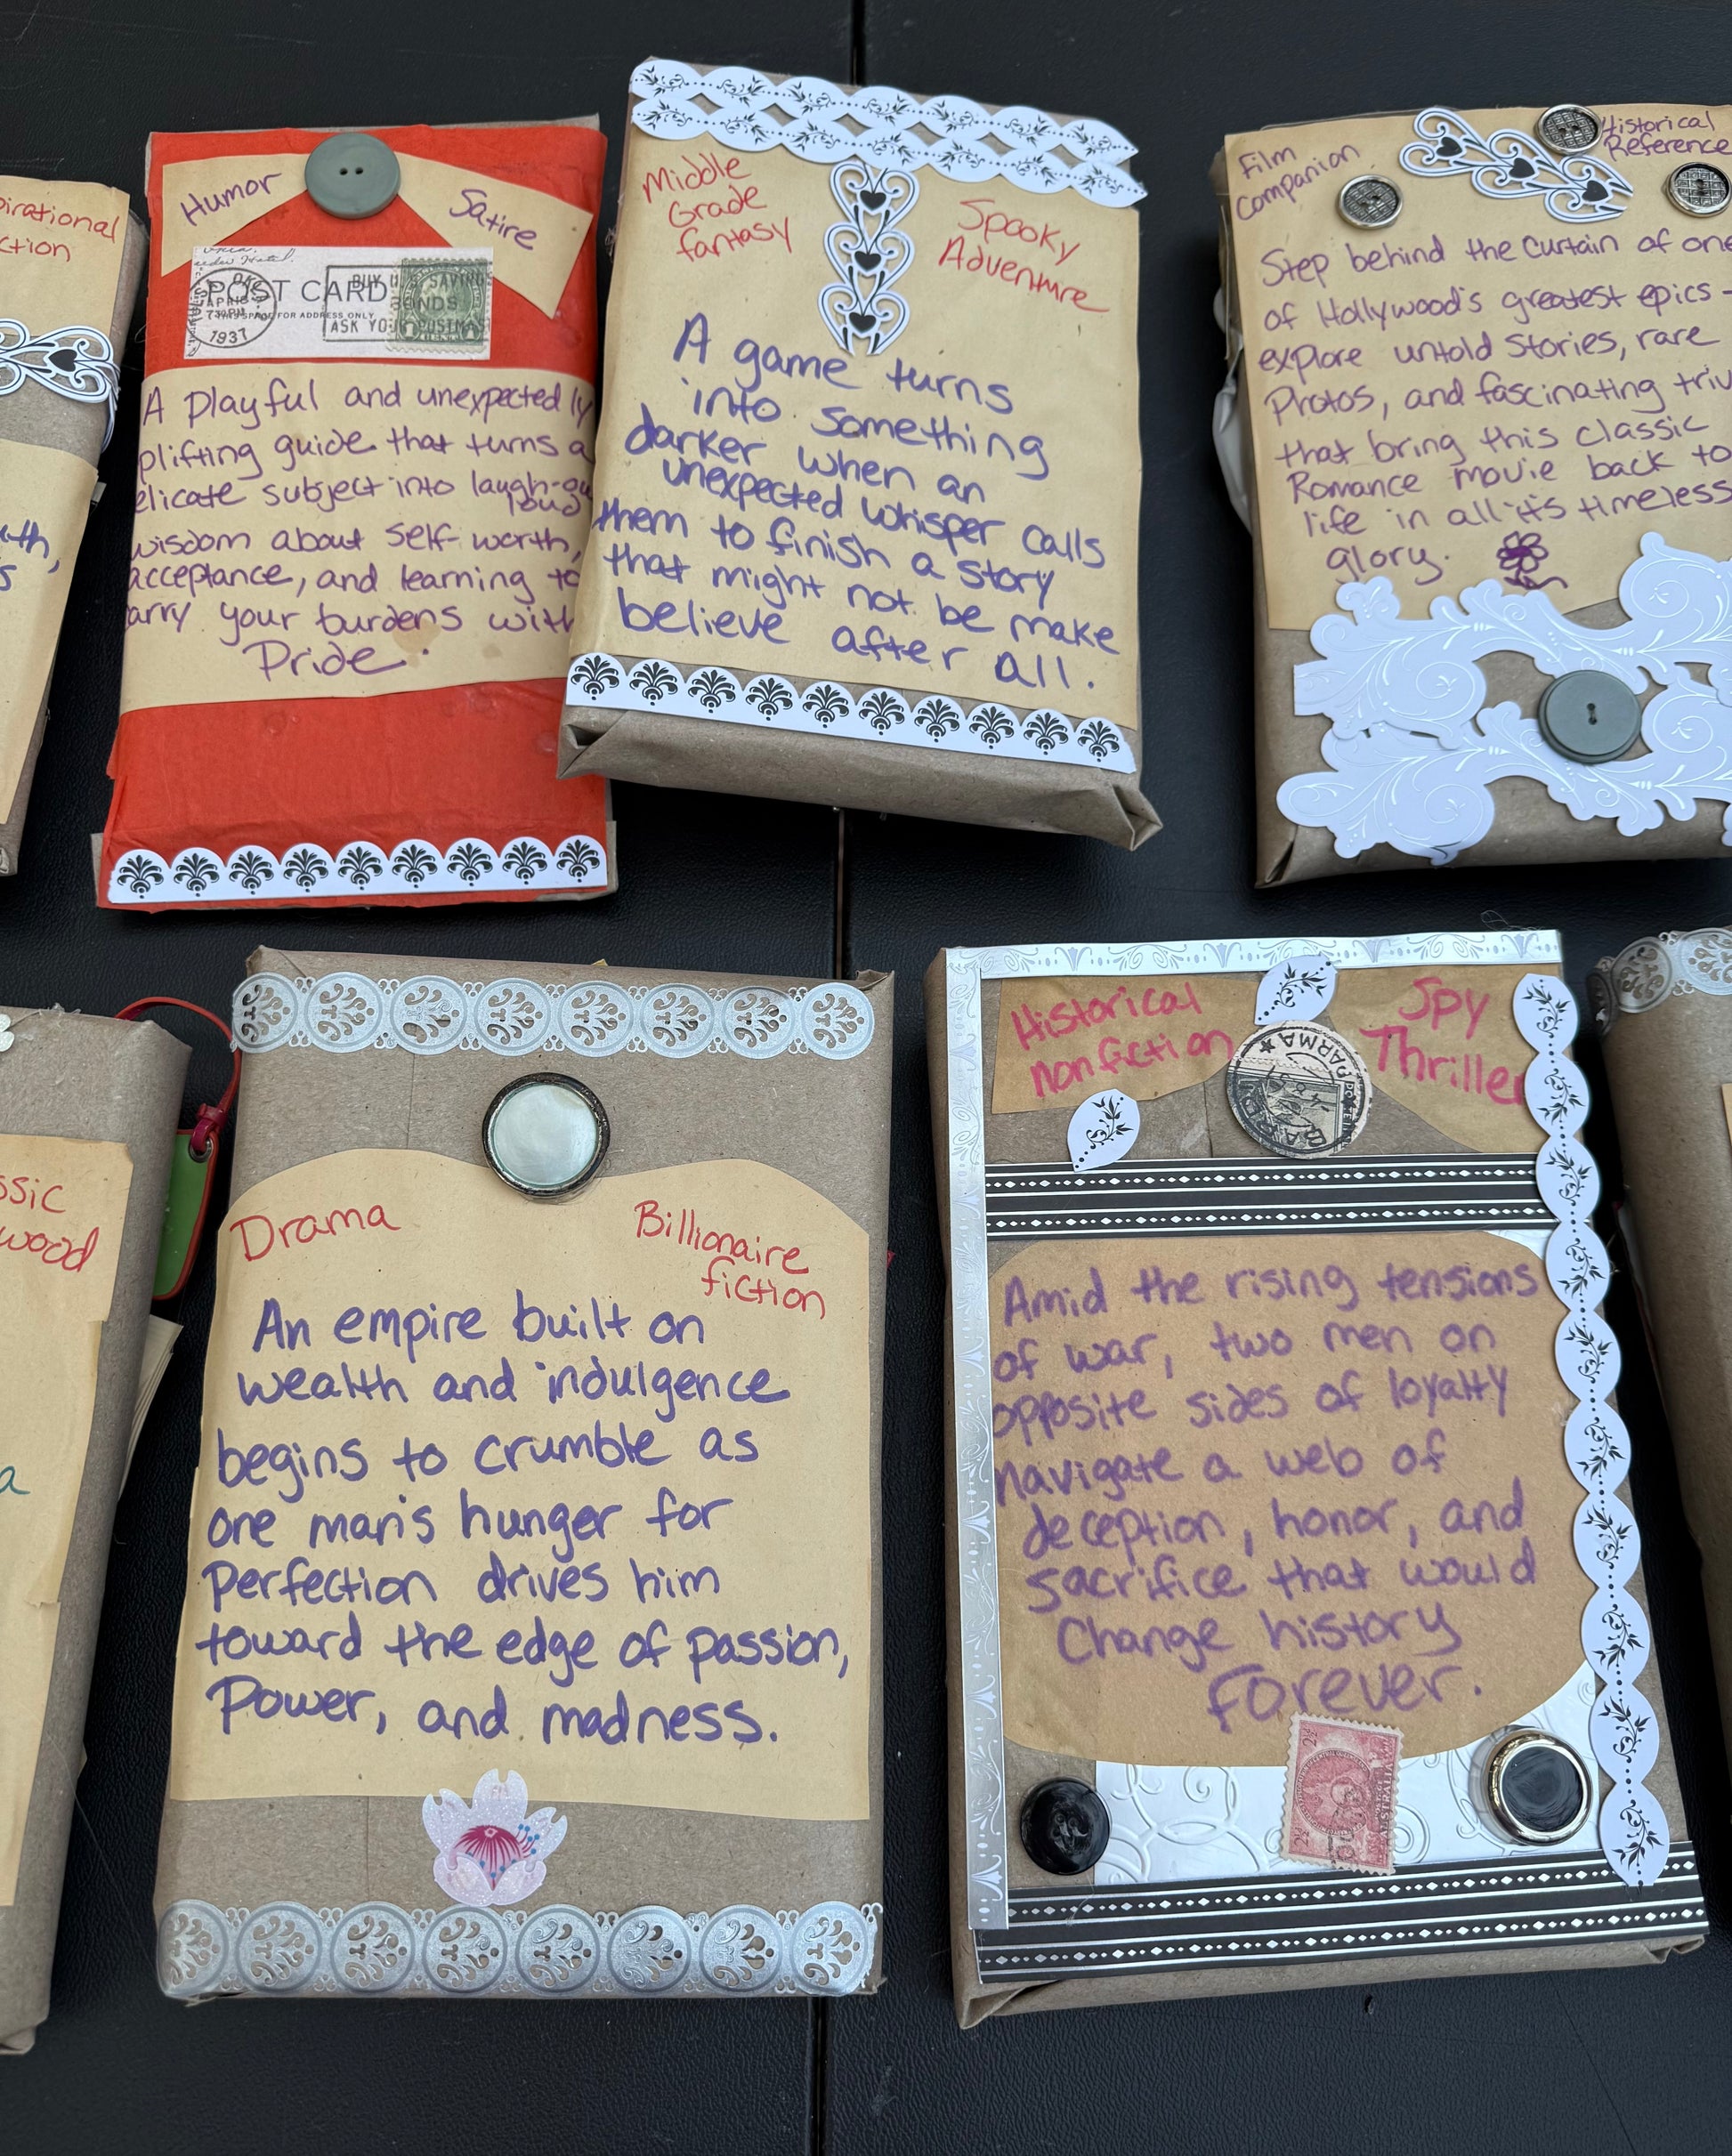 Humor
Satire
POST CARD
THIS SPACE FOR ADDRESS ONLY
APR
1937
BUY U.S. SAVING
BONDS
ASK YOUR POSTMAS
A Playful and unexpectedly
plifting guide that turns a
elicate subject into laugh-ou
loud
wisdom about self-worth,
acceptance, and learning to
arry your burdens with
Pride.
Middle
Grade
fantasy
Spooky
Adventure
A game turns
into something
darker when an
unexpected whisper calls
them to finish a story
that might not be make
believe after all.
Film
Companion
Historical
Reference
Step behind the curtain of one
of Hollywood's greatest epics -
explore untold stories, rare
Photos, and fascinating triv
that bring this classic
Romance movie back to
life in all it's timeless
glory.
pirational
ction
Drama
Billionaire
fiction
An empire built on
wealth and indulgence
begins to crumble as
one man's hunger for
Perfection drives him
toward the edge of passion,
Power, and madness.
Historical
nonfiction
Spy
Thriller
PARMA
Amid the rising tensions
of war, two men on
opposite sides of loyalty
navigate a web of
deception, honor, and
sacrifice that would
Change history
Forever.
2½
AUSTRALIA
2½
ssic
wood
a